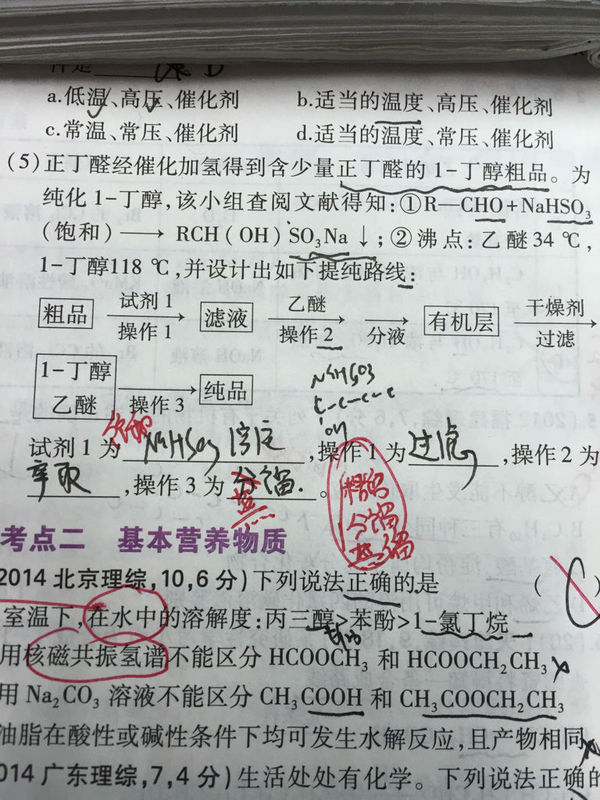 a.低温、高压、催化剂 b.适当的温度、高压、催化剂
c.常温、常压、催化剂 d.适当的温度、常压、催化剂
(5)正丁醛经催化加氢得到含少量正丁醛的1-丁醇粗品。为
纯化1-丁醇,该小组查阅文献得知:①R—CHO+NaHSO3
(饱和)⟶RCH(OH)SO3Na↓;②沸点:乙醚34 ℃,
1-丁醇118 ℃,并设计出如下提纯路线:
试剂1 乙醚 干燥剂
粗品 滤液 有机层
操作1 操作2 分液 过滤
1-丁醇
乙醚 操作3 纯品
NaHSO3
C-C-C-C
OH
饱和
试剂1为NaHSO3溶液,操作1为过滤,操作2为
萃取,操作3为分馏。
蒸
分馏
蒸馏
考点二 基本营养物质
2014北京理综,10,6分)下列说法正确的是 ( C
室温下,在水中的溶解度:丙三醇>苯酚>1-氯丁烷
用核磁共振氢谱不能区分HCOOCH3和HCOOCH2CH3
用Na2CO3溶液不能区分CH3COOH和CH3COOCH2CH3
油脂在酸性或碱性条件下均可发生水解反应,且产物相同
014广东理综,7,4分)生活处处有化学。下列说法正确的